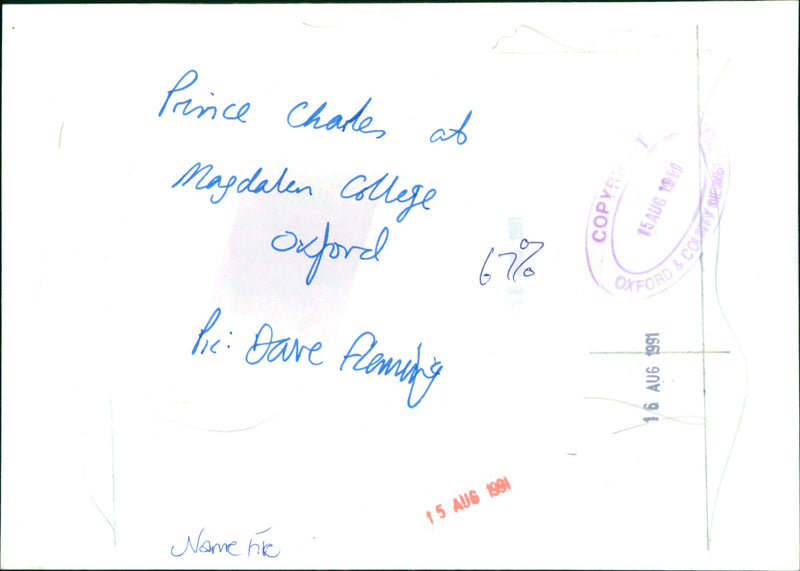 Prince Charles at
Magdalen College
Oxford
67%
Pic: Dave Fleming
COPYRIGHT
15 AUG 1991
OXFORD & COUNTY NEWSPAPERS
16 AUG 1991
15 AUG 1991
Name File